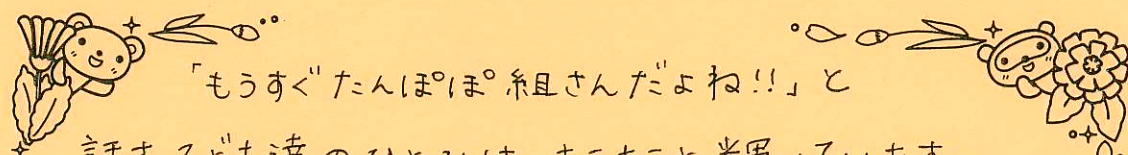 「もうすぐたんぽぽ組さんだよね!!」と
話す子ども達のひとみは、キラキラと輝いています